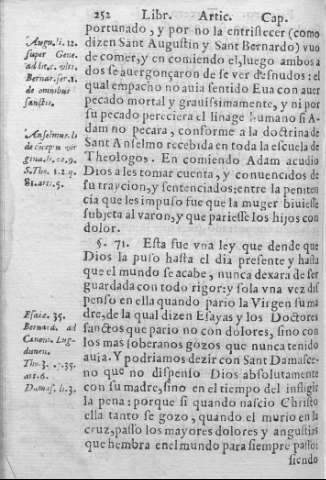 252 Libr. Artic. Cap.
portunado, y por no la entristecer (como
dizen Sant Augustin y Sant Bernardo) vuo
de comer, y en comiendo el, luego ambos a
dos se auergonçaron de se ver desnudos: el
qual empacho no auia sentido Eua con auer
pecado mortal y grauissimamente, y ni por
su pecado pereciera el linage humano si A-
dam no pecara, conforme a la doctrina de
Sant Anselmo recebida en toda la escuela de
Theologos. En comiendo Adam acudio
Dios a les tomar cuenta, y conuencidos de
su traycion, y sentenciados: entre la peniten
cia que les impuso fue que la muger biuiesse
subjeta al varon, y que pariesse los hijos con
dolor.
§. 71. Esta fue vna ley que dende que
Dios la puso hasta el dia presente y hasta
que el mundo se acabe, nunca dexara de ser
guardada con todo rigor: y sola vna vez dis
penso en ella quando pario la Virgen su ma
dre, de la qual dizen Esayas y los Doctores
sanctos que pario no con dolores, sino con
los mas soberanos gozos que nunca tenido
auia. Y podriamos dezir con Sant Damasce-
no que no dispenso Dios absolutamente
con su madre, sino en el tiempo del infligir
la pena: porque si quando nascio Christo
ella tanto se gozo, quando el murio en la
cruz, passo los mayores dolores y angustias
que hembra en el mundo para siempre passo:
siendo
Augu. li. 12.
super Gene.
ad lit. c. vlti.
Bernar. ser. 1.
de omnibus
sanctis.
Anselmus. li
de cõcep. vir
gina. li. ca. 9.
S. Tho. 1. 2. q.
81. arti. 5.
Esaie. 35.
Bernard. ad
Canon. Lug-
dunen.
Tho. 3. q. 35.
art. 6.
Damas. li. 3.